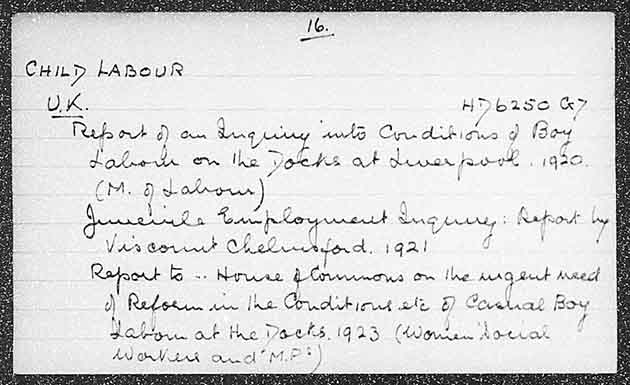 16.
CHILD LABOUR
U.K. HD6250 G7
Report of an Inquiry into Conditions of Boy
Labour on the Docks at Liverpool. 1920.
(M. of Labour)
Juvenile Employment Inquiry: Report by
Viscount Chelmsford. 1921
Report to .. House of Commons on the urgent need
of Reform in the Conditions etc of Casual Boy
Labour at the Docks. 1923 (Women Social
Workers and M.P.s)